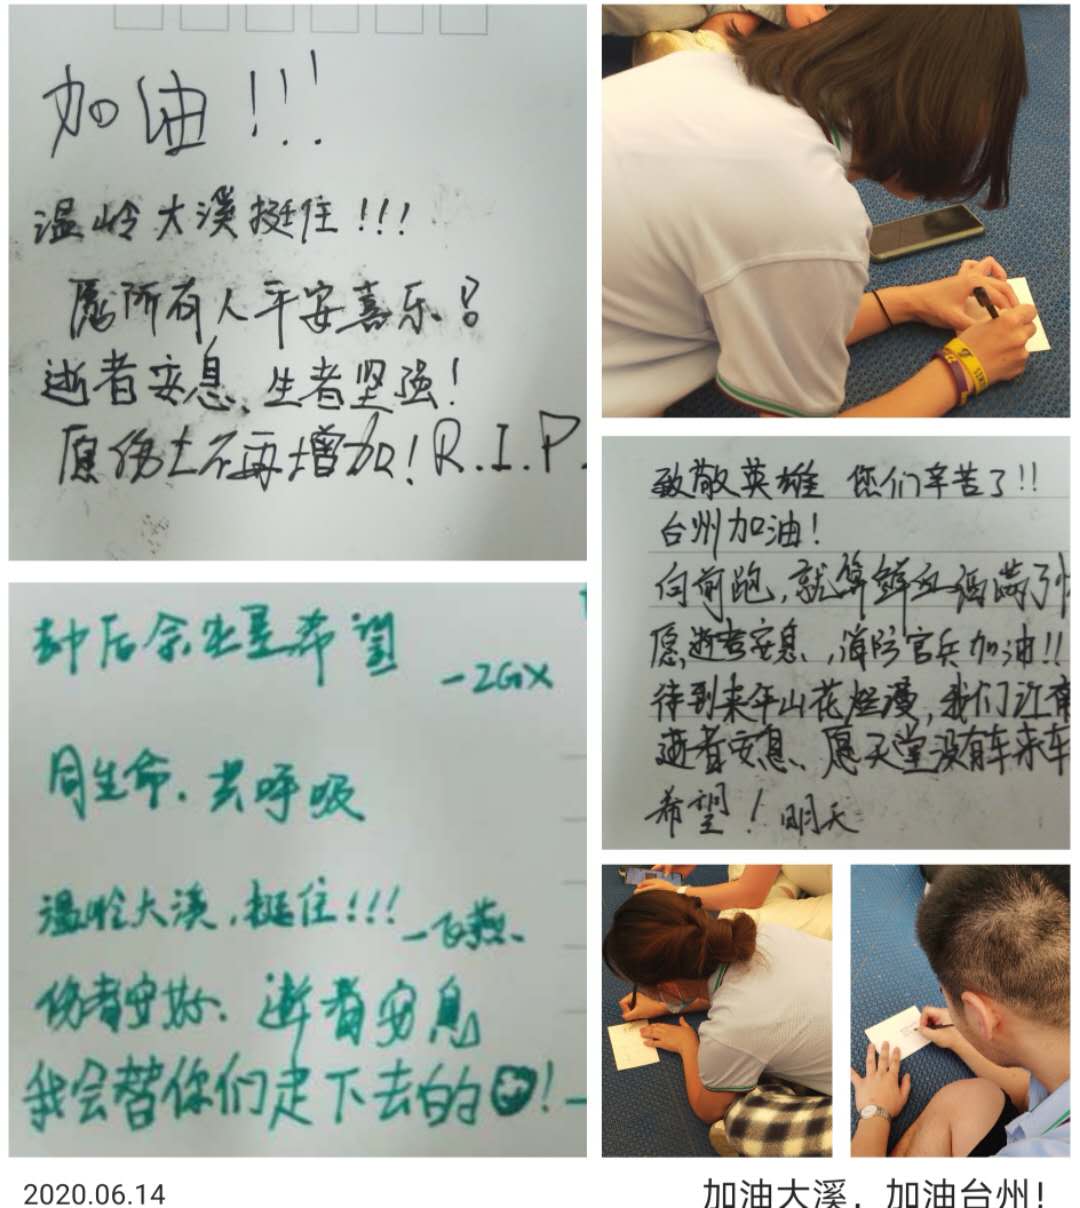 加油!!!
温岭大溪挺住!!!
愿所有人平安喜乐
逝者安息、生者坚强!
愿伤亡不再增加! R.I.P.
致敬英雄 您们辛苦了!!
台州加油!
向前跑,就算鲜血洒满了
愿逝者安息,消防官兵加油!!
待到来年山花烂漫,我们
逝者安息、愿天堂没有车来车
希望! 明天
劫后余生是希望 -ZGX
同生命.共呼吸
温岭大溪,挺住!!! -飞燕.
伤者安好.逝者安息
我会替你们走下去的!
2020.06.14
加油大溪,加油台州!